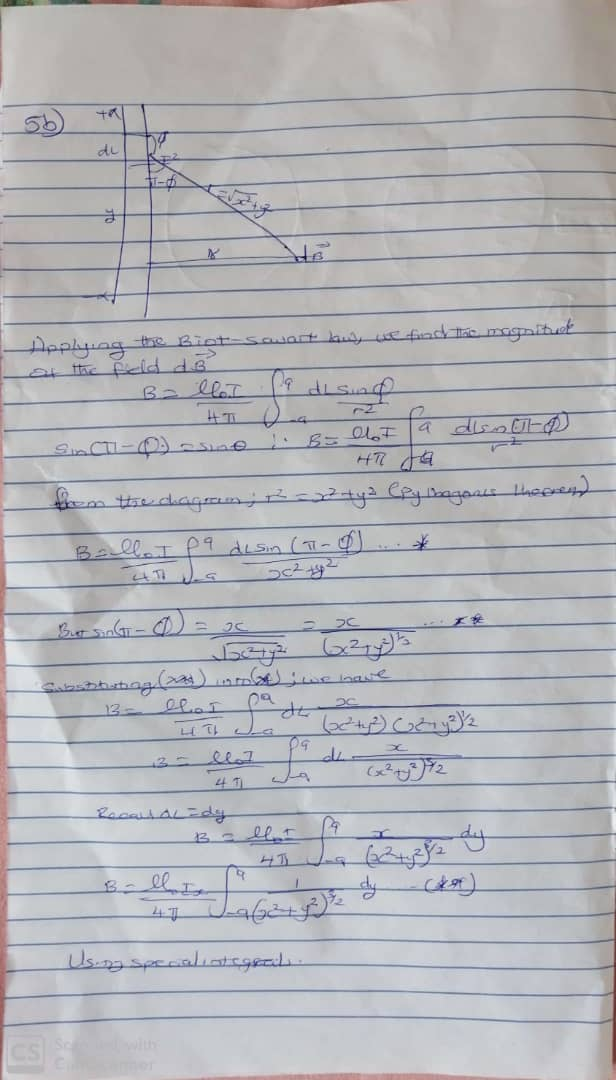 5b)
+a
φ
dl
π-φ
r = √x²+y²
y
x
dB
-a
Applying the Biot-Savart law, we find the magnitude
of the field dB
B = μ₀I/4π ∫₋ₐᵃ dl sinφ/r²
sin(π-φ) = sinθ ∴ B = μ₀I/4π ∫₋ₐᵃ dl sin(π-φ)/r²
from the diagram; r² = x²+y² (Pythagoras theorem)
B = μ₀I/4π ∫₋ₐᵃ dl sin(π-φ)/x²+y² ... *
But sin(π-φ) = x/√x²+y² = x/(x²+y²)^½ ... **
Substituting (**) into (*); we have
B = μ₀I/4π ∫₋ₐᵃ dl x/(x²+y²)(x²+y²)^½
B = μ₀I/4π ∫₋ₐᵃ dl x/(x²+y²)^3/2
Recall dl = dy
B = μ₀I/4π ∫₋ₐᵃ x/(x²+y²)^3/2 dy
B = μ₀Ix/4π ∫₋ₐᵃ 1/(x²+y²)^3/2 dy
Using special integrals.
CS Scanned with
CamScanner